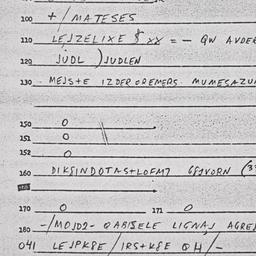 100 + / MATESES
110 LEJZELIXE $ XX = - GW AVDER
120 JUDL ) JUDLEN
130 MEJS+E IZDERODEMERS MUMESAZU
150 O
151 O
152 O
160 DIKSINDOTAS+LOFM7 GSJVORN (3
170 O 171 O
180 -/MOJD2- QABISELE LIGNAJ AGREJ
041 LEJPK8E / IRS+K8E QH /-